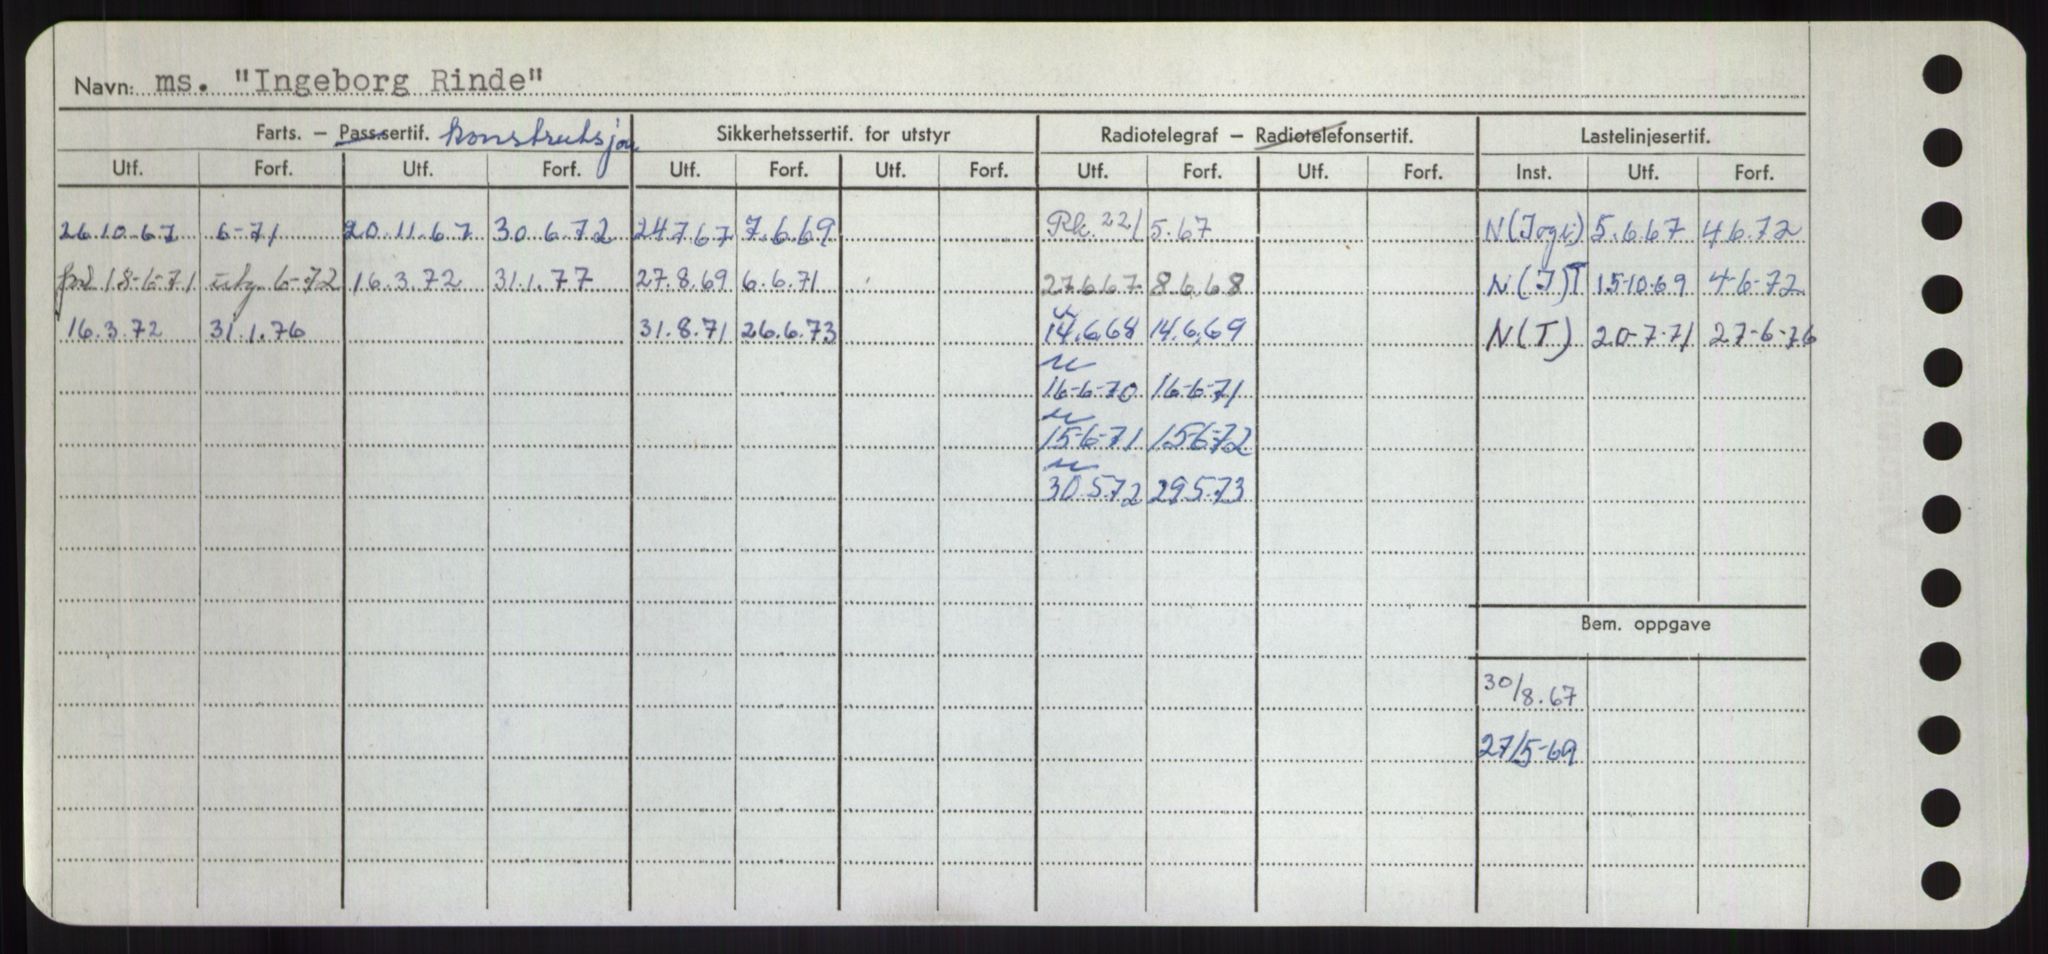 Navn: ms. "Ingeborg Rinde"
Farts. – Passsertif. konstruksjon Sikkerhetssertif. for utstyr Radiotelegraf – Radiotelefonsertif. Lastelinjesertif.
Utf. Forf. Utf. Forf. Utf. Forf. Utf. Forf. Utf. Forf. Utf. Forf. Inst. Utf. Forf.
26.10.67 6-71 20.11.67 30.6.72 24.7.67 7.6.69 Rk. 22/5.67 N(Jogi) 5.6.67 4.6.72
18-6-71 utg. 6-72 16.3.72 31.1.77 27.8.69 6.6.71 27.6.67 8.6.68 N(J)T 15-10-69 4-6-72
16.3.72 31.1.76 31.8.71 26.6.73 14.6.68 14.6.69 N(T) 20-7-71 27-6-76
16-6-70 16-6-71
15-6-71 15-6-72
30.5.72 29.5.73
Bem. oppgave
30/8.67
27/5-69